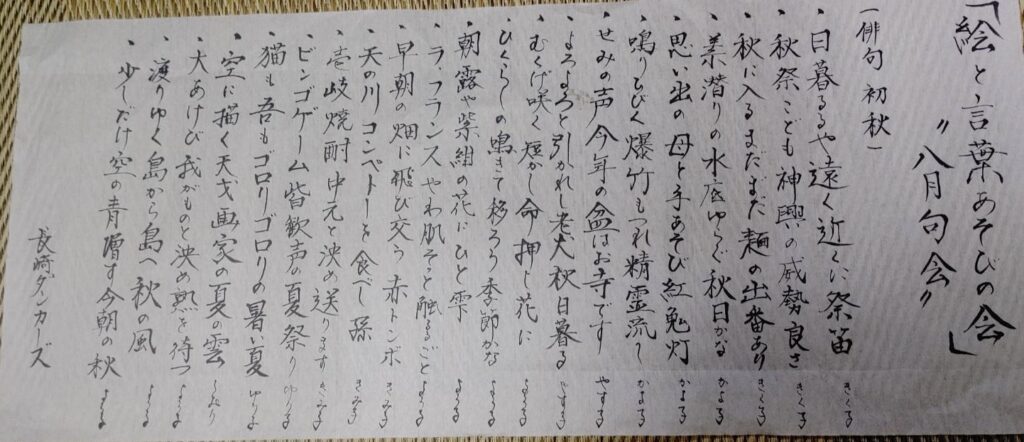 「絵と言葉あそびの会」
〝八月句会〟
(俳句 初秋)
・日暮るるや遠く近くに祭笛 きくみ
・秋祭こども神輿の威勢良さ きくみ
・秋に入るまだまだ麺の出番あり きくみ
・素潜りの水底ゆらぐ秋日かな かよこ
・思い出の母と手あそび紅鬼灯 かよこ
・鳴りひびく爆竹もつれ精霊流し かよこ
・せみの声今年の盆はお寺です やすこ
・よろよろと引かれし老犬秋日暮る やすこ
・むくげ咲く短かし命押し花に
・ひぐらしの鳴きて移ろう季節かな
・朝露や紫紺の花にひと雫
・ラ・フランスやわ肌そっと触るごと
・早朝の畑に飛び交う赤トンボ きみこ
・天の川コンペートーを食べし孫 きみこ
・壱岐焼酎中元と決め送ります きみこ
・ビンゴゲーム皆歓声の夏祭り ゆりこ
・猫も吾もゴロリゴロリの暑い夏 ゆりこ
・空に描く天才画家の夏の雲
・大あけび我がものと決め熟を待つ
・渡りゆく島から島へ秋の風
・少しだけ空の青増す今朝の秋
長崎ダンカーズ